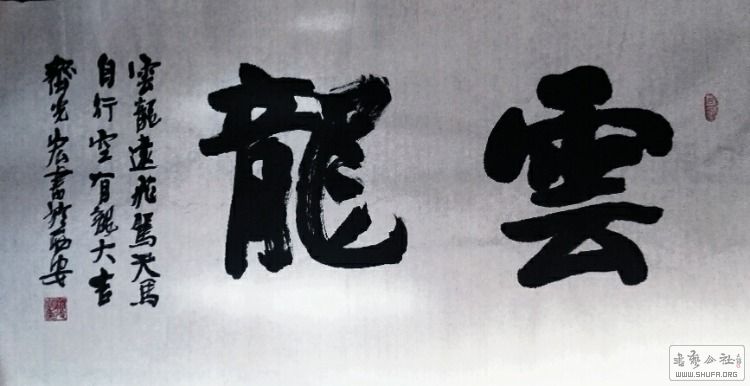 雲龍
雲龍遠飛駕天馬
自行空有龍大吉
齊光宏書於西安
書藝公社
WWW.SHUFA.ORG